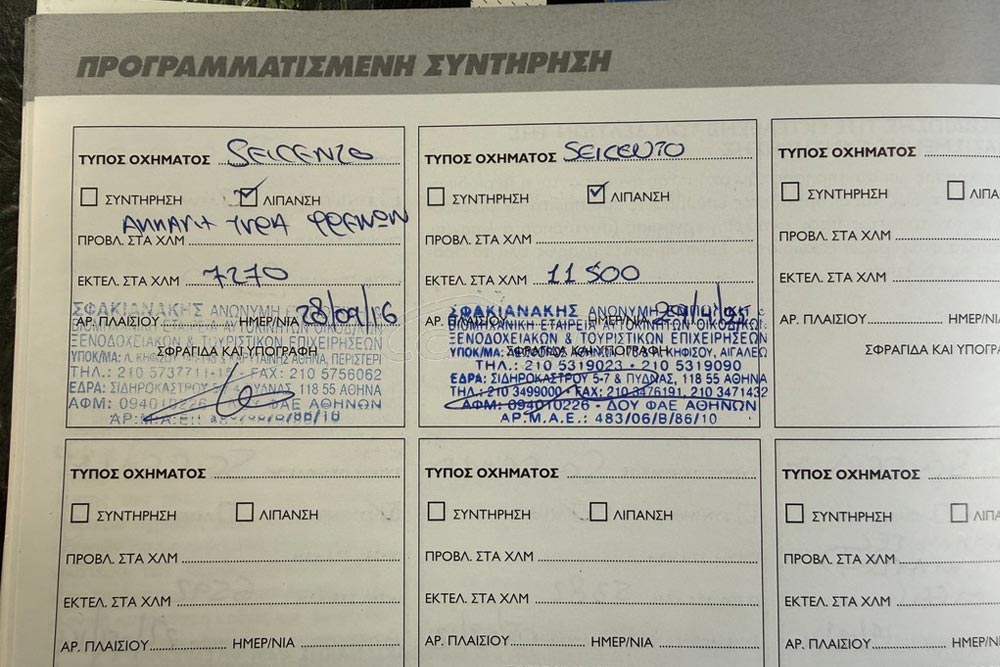 ΠΡΟΓΡΑΜΜΑΤΙΣΜΕΝΗ ΣΥΝΤΗΡΗΣΗ
ΤΥΠΟΣ ΟΧΗΜΑΤΟΣ SEICENTO
ΣΥΝΤΗΡΗΣΗ ΛΙΠΑΝΣΗ
ΑΛΛΑΓΗ ΥΓΡΑ ΦΡΕΝΩΝ
ΠΡΟΒΛ. ΣΤΑ ΧΛΜ
ΕΚΤΕΛ. ΣΤΑ ΧΛΜ 7270
ΑΡ. ΠΛΑΙΣΙΟΥ ΗΜΕΡ/ΝΙΑ 28/09/16
ΣΦΡΑΓΙΔΑ ΚΑΙ ΥΠΟΓΡΑΦΗ
ΣΦΑΚΙΑΝΑΚΗΣ ΑΝΩΝΥΜΗ
ΞΕΝΟΔΟΧΕΙΑΚΩΝ & ΤΟΥΡΙΣΤΙΚΩΝ ΕΠΙΧΕΙΡΗΣΕΩΝ
ΥΠΟΚ/ΜΑ: ΑΘΗΝΑ, ΠΕΡΙΣΤΕΡΙ
ΤΗΛ.: 210 FAX: 210 5756062
ΕΔΡΑ: ΣΙΔΗΡΟΚΑΣΤΡΟΥ 5-7 & ΠΥΔΝΑΣ, 118 55 ΑΘΗΝΑ
ΑΦΜ: 094010226 ΦΑΕ ΑΘΗΝΩΝ
ΑΡ.Μ.Α.Ε.:
ΤΥΠΟΣ ΟΧΗΜΑΤΟΣ SEICENTO
ΣΥΝΤΗΡΗΣΗ ΛΙΠΑΝΣΗ
ΠΡΟΒΛ. ΣΤΑ ΧΛΜ
ΕΚΤΕΛ. ΣΤΑ ΧΛΜ 11500
ΑΡ. ΠΛΑΙΣΙΟΥ
ΣΦΡΑΓΙΔΑ ΚΑΙ ΥΠΟΓΡΑΦΗ
ΣΦΑΚΙΑΝΑΚΗΣ ΑΝΩΝΥΜΗ
ΒΙΟΜΗΧΑΝΙΚΗ ΕΤΑΙΡΕΙΑ ΑΥΤΟΚΙΝΗΤΩΝ
ΞΕΝΟΔΟΧΕΙΑΚΩΝ & ΤΟΥΡΙΣΤΙΚΩΝ ΕΠΙΧΕΙΡΗΣΕΩΝ
ΥΠΟΚ/ΜΑ: ΚΗΦΙΣΟΥ, ΑΙΓΑΛΕΩ
ΤΗΛ.: 210 5319023 - 210 5319090
ΕΔΡΑ: ΣΙΔΗΡΟΚΑΣΤΡΟΥ 5-7 & ΠΥΔΝΑΣ, 118 55 ΑΘΗΝΑ
ΤΗΛ.: 210 3499000 - FAX: 210 3476191, 210 3471432
ΑΦΜ: 094010226 - ΔΟΥ ΦΑΕ ΑΘΗΝΩΝ
ΑΡ.Μ.Α.Ε.: 483/06/Β/86/10
ΤΥΠΟΣ ΟΧΗΜΑΤΟΣ
ΣΥΝΤΗΡΗΣΗ
ΠΡΟΒΛ. ΣΤΑ ΧΛΜ
ΕΚΤΕΛ. ΣΤΑ ΧΛΜ
ΑΡ. ΠΛΑΙΣΙΟΥ
ΣΦΡΑΓΙΔΑ ΚΑΙ
ΤΥΠΟΣ ΟΧΗΜΑΤΟΣ
ΣΥΝΤΗΡΗΣΗ ΛΙΠΑΝΣΗ
ΠΡΟΒΛ. ΣΤΑ ΧΛΜ
ΕΚΤΕΛ. ΣΤΑ ΧΛΜ
ΑΡ. ΠΛΑΙΣΙΟΥ ΗΜΕΡ/ΝΙΑ
ΤΥΠΟΣ ΟΧΗΜΑΤΟΣ
ΣΥΝΤΗΡΗΣΗ ΛΙΠΑΝΣΗ
ΠΡΟΒΛ. ΣΤΑ ΧΛΜ
ΕΚΤΕΛ. ΣΤΑ ΧΛΜ
ΑΡ. ΠΛΑΙΣΙΟΥ ΗΜΕΡ/ΝΙΑ
ΤΥΠΟΣ ΟΧΗΜΑΤΟΣ
ΣΥΝΤΗΡΗΣΗ
ΠΡΟΒΛ. ΣΤΑ ΧΛΜ
ΕΚΤΕΛ. ΣΤΑ ΧΛΜ
ΑΡ. ΠΛΑΙΣΙΟΥ